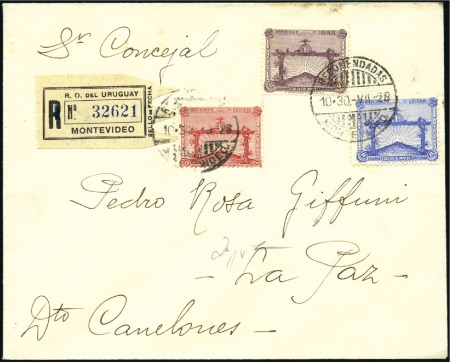 Sr Concejal
R. O. DEL URUGUAY
R No. 32621
MONTEVIDEO
SELLO FECHA
RECOMENDADAS
10·30·VII·28
Pedro Rosa Giffuni
- La Paz -
Dto Canelones -